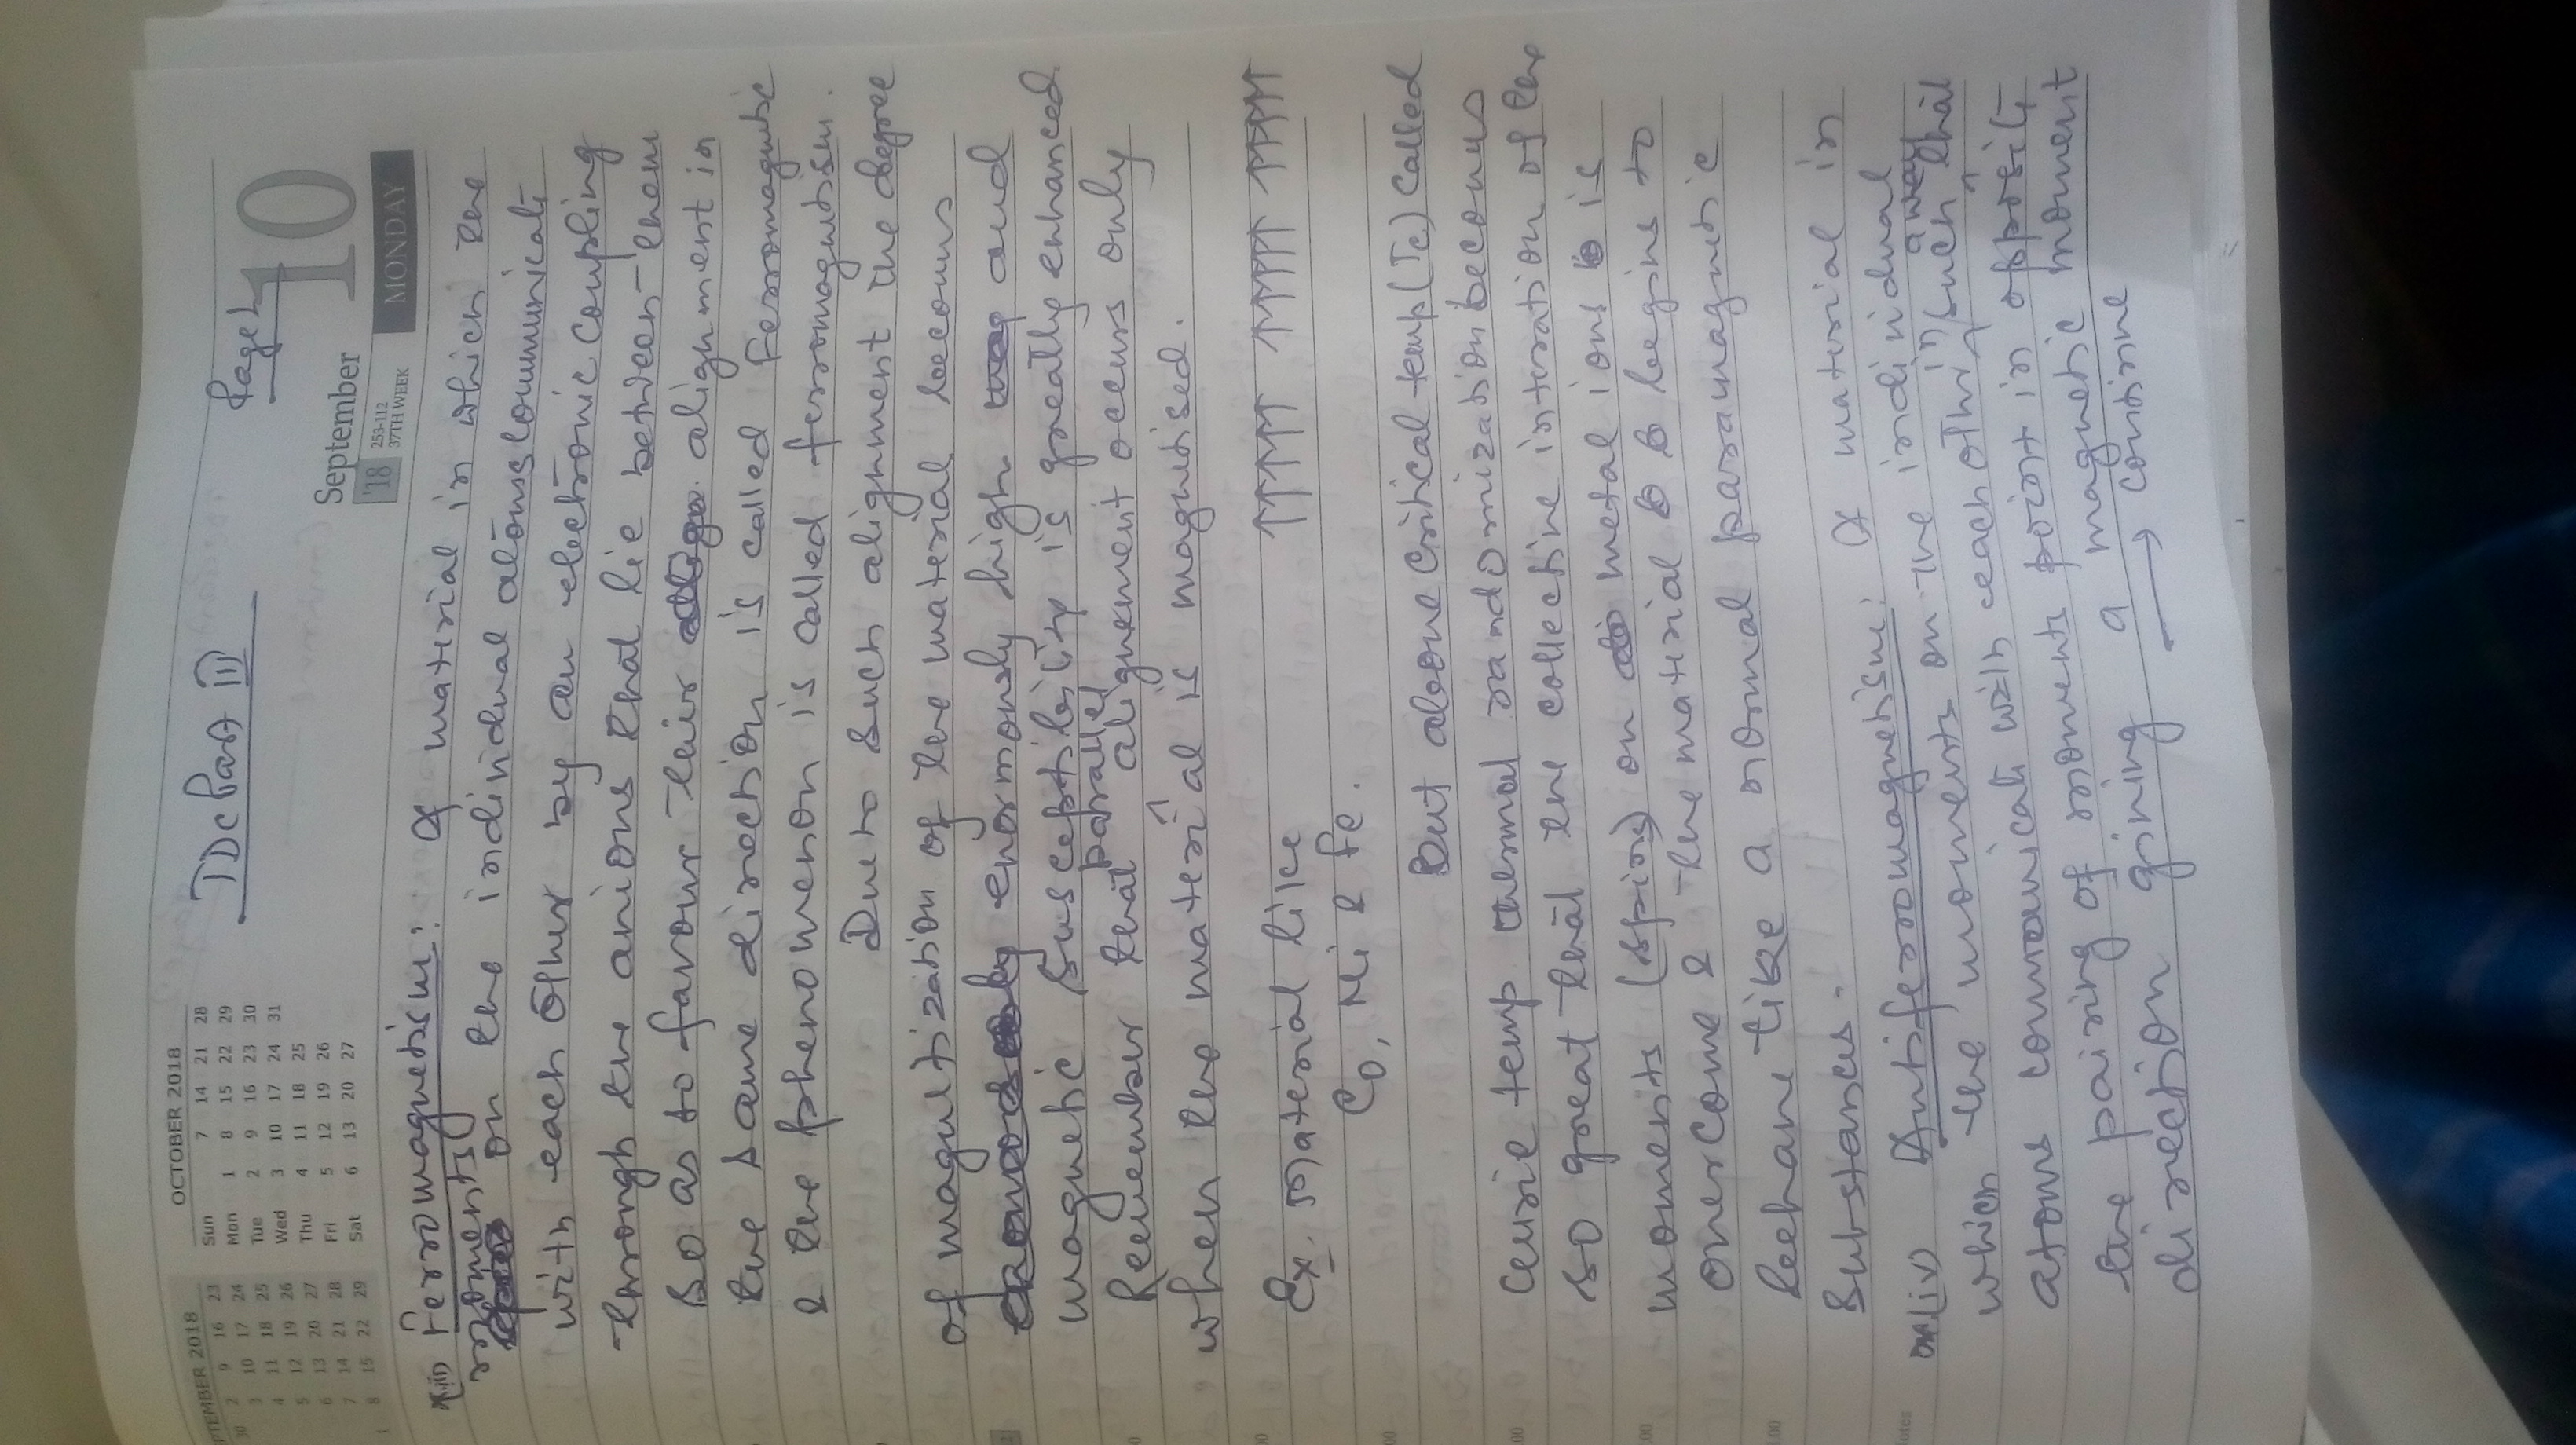 SEPTEMBER 2018
30 2 9 16 23
3 10 17 24
4 11 18 25
5 12 19 26
6 13 20 27
7 14 21 28
1 8 15 22 29
OCTOBER 2018
Sun 7 14 21 28
Mon 1 8 15 22 29
Tue 2 9 16 23 30
Wed 3 10 17 24 31
Thu 4 11 18 25
Fri 5 12 19 26
Sat 6 13 20 27
TDC Part III
Page 1
September 10
'18 253-112
37TH WEEK
MONDAY
(iii) Ferromagnetism: A material in which the
moments on the individual atoms communicate
with each other by an electronic coupling
through the anions that lie between them
so as to favour their alignment in
the same direction is called Ferromagnetic
& the phenomenon is called ferromagnetism.
Due to such alignment the degree
of magnetization of the material becomes
enormously high and
magnetic susceptibility is greatly enhanced.
Remember that parallel alignement occurs only
when the material is magnetised.
Ex. Material like ↑↑↑↑ ↑↑↑↑ ↑↑↑↑ ↑↑↑↑
Co, Ni & Fe.
But above critical temp (Tc) called
Curie temp thermal randomization becomes
so great that the collective interation of the
moments (spins) on metal ions is
overcome & the material begins to
behave like a normal paramagnetic
substances.
(iv) Antiferromagnetism: A material in
which the moments on the individual
atoms communicate with each other in such a way that
the pairing of moments point in opposite
direction giving a magnetic moment
→ continue